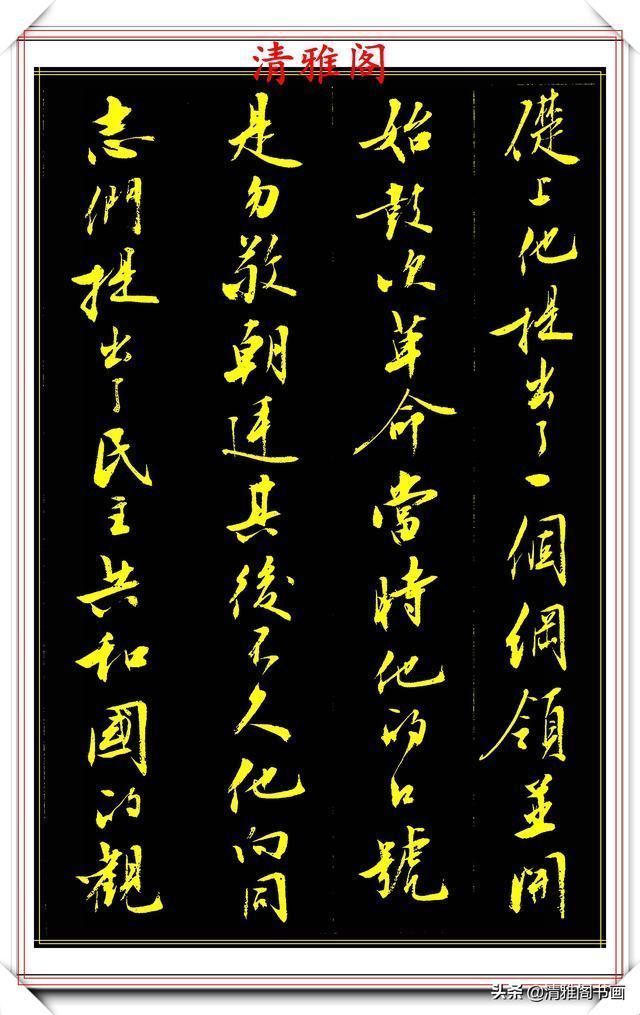 清雅阁
礎上他提出了一個綱領並開
始鼓吹革命當時他的口號
是勿敬朝廷其後不久他向同
志們提出了民主共和國的觀
头条 @清雅阁书画